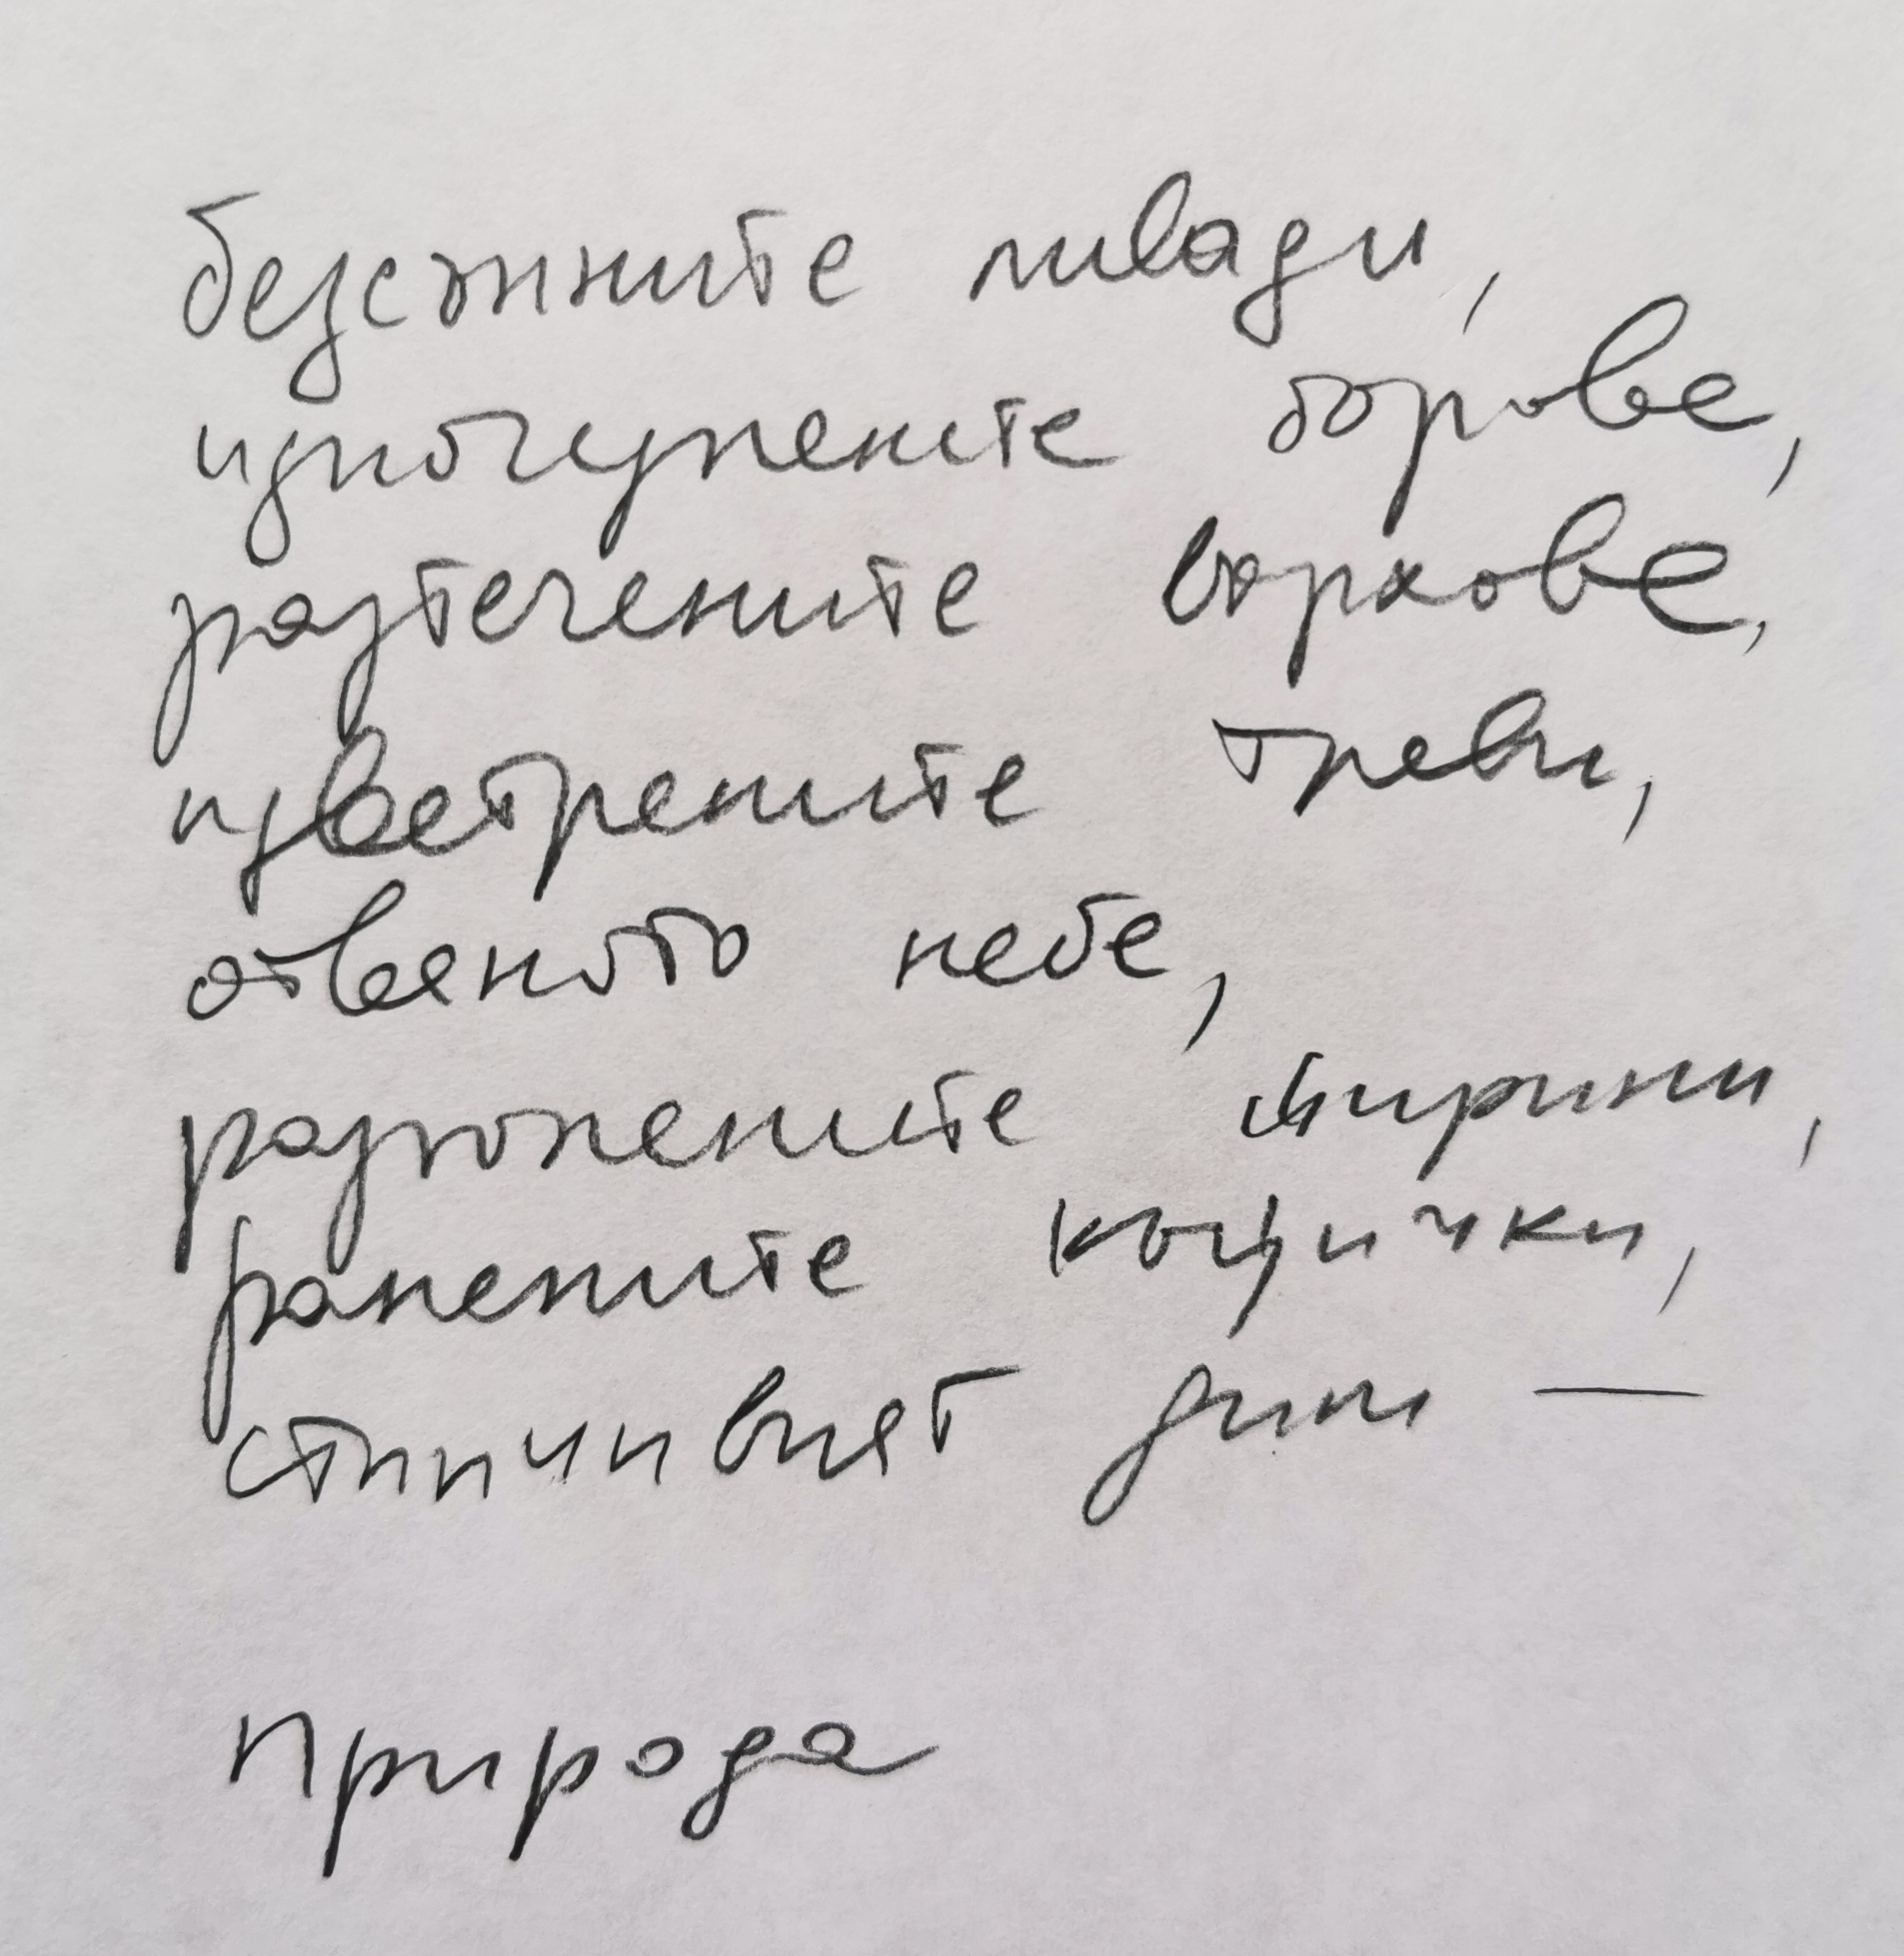 безсънните ливади,
изпочупените борове,
разтечените върхове,
изветрените треви,
отвяното небе,
ширини,
ранените къщички,
стипчивият дим —
Природа